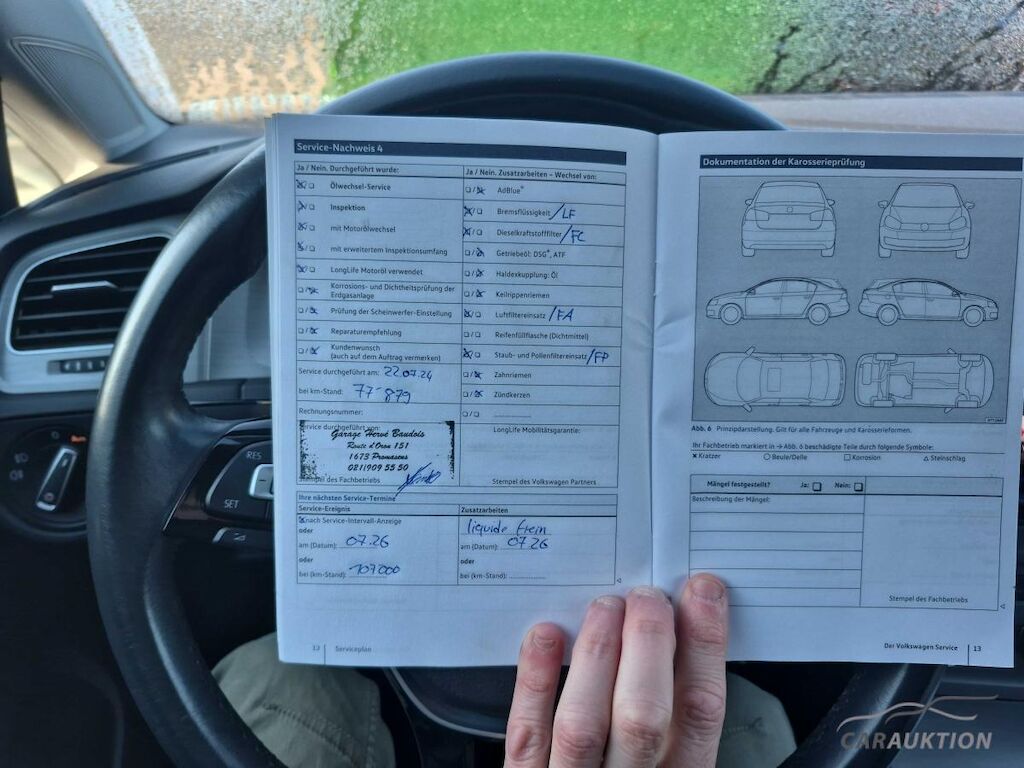 Service-Nachweis 4
Ja / Nein. Durchgeführt wurde:
Ölwechsel-Service
Inspektion
mit Motorölwechsel
mit erweitertem Inspektionsumfang
LongLife Motoröl verwendet
Korrosions- und Dichtheitsprüfung der
Erdgasanlage
Prüfung der Scheinwerfer-Einstellung
Reparaturempfehlung
Kundenwunsch
(auch auf dem Auftrag vermerken)
Service durchgeführt am: 22.07.24
bei km-Stand: 77'879
Rechnungsnummer:
Service durchgeführt von:
Garage Hervé Baudois
Route d'Oron 151
1673 Promasens
021/909 55 50
Stempel des Fachbetriebs
Ja / Nein. Zusatzarbeiten – Wechsel von:
AdBlue®
Bremsflüssigkeit /LF
Dieselkraftstofffilter /FC
Getriebeöl: DSG®, ATF
Haldexkupplung: Öl
Keilrippenriemen
Luftfiltereinsatz /FA
Reifenfüllflasche (Dichtmittel)
Staub- und Pollenfiltereinsatz /FP
Zahnriemen
Zündkerzen
LongLife Mobilitätsgarantie:
Stempel des Volkswagen Partners
Ihre nächsten Service-Termine
Service-Ereignis
nach Service-Intervall-Anzeige
oder
am (Datum): 07.26
oder
bei (km-Stand): 107000
Zusatzarbeiten
liquide frein
am (Datum): 07.26
oder
bei (km-Stand):
Serviceplan
Dokumentation der Karosserieprüfung
Abb. 6 Prinzipdarstellung. Gilt für alle Fahrzeuge und Karosserieformen.
Ihr Fachbetrieb markiert in → Abb. 6 beschädigte Teile durch folgende Symbole:
Kratzer Beule/Delle Korrosion Steinschlag
Mängel festgestellt? Ja: Nein:
Beschreibung der Mängel:
Stempel des Fachbetriebs
Der Volkswagen Service 13
RES
SET
CARAUKTION